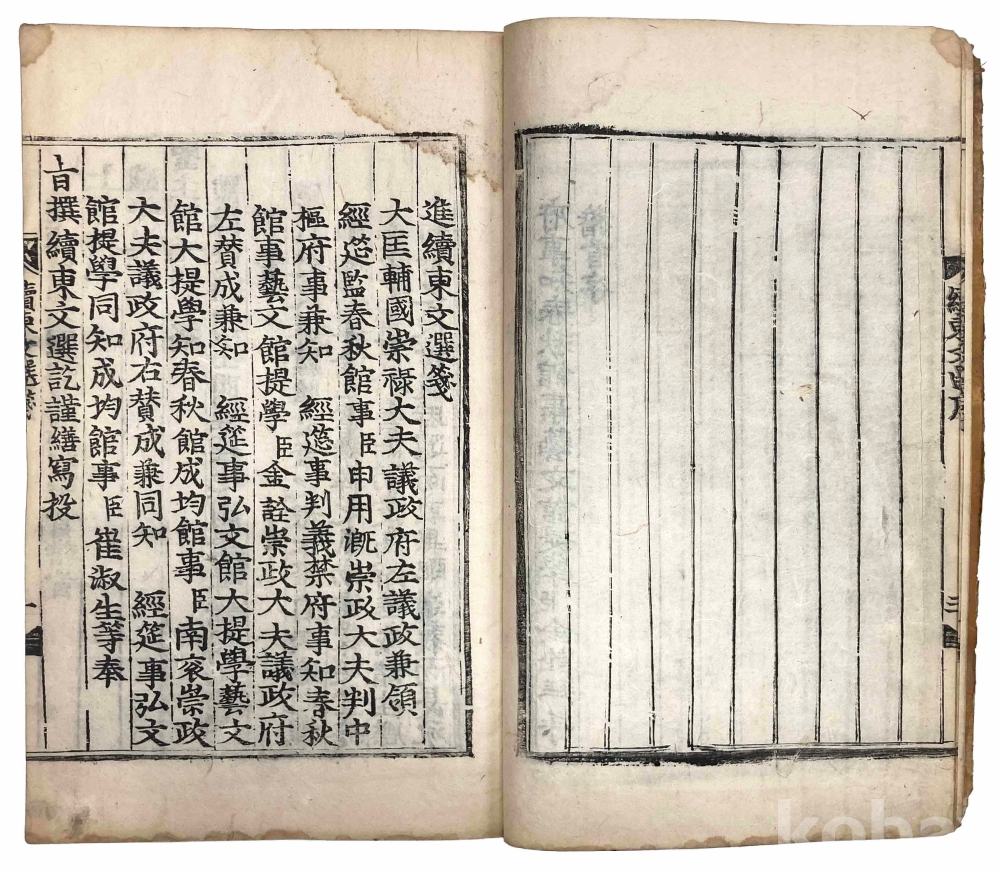 續東文選序
三
進續東文選箋
大匡輔國崇祿大夫議政府左議政兼領
經筵監春秋館事臣申用漑崇政大夫判中
樞府事兼知 經筵事判義禁府事知春秋
館事藝文館提學臣金詮崇政大夫議政府
左賛成兼知 經筵事弘文館大提學藝文
館大提學知春秋館成均館事臣南衮崇政
大夫議政府右賛成兼同知 經筵事弘文
館提學同知成均館事臣崔淑生等奉
旨撰續東文選訖謹繕寫投
續東文選箋
一
koba